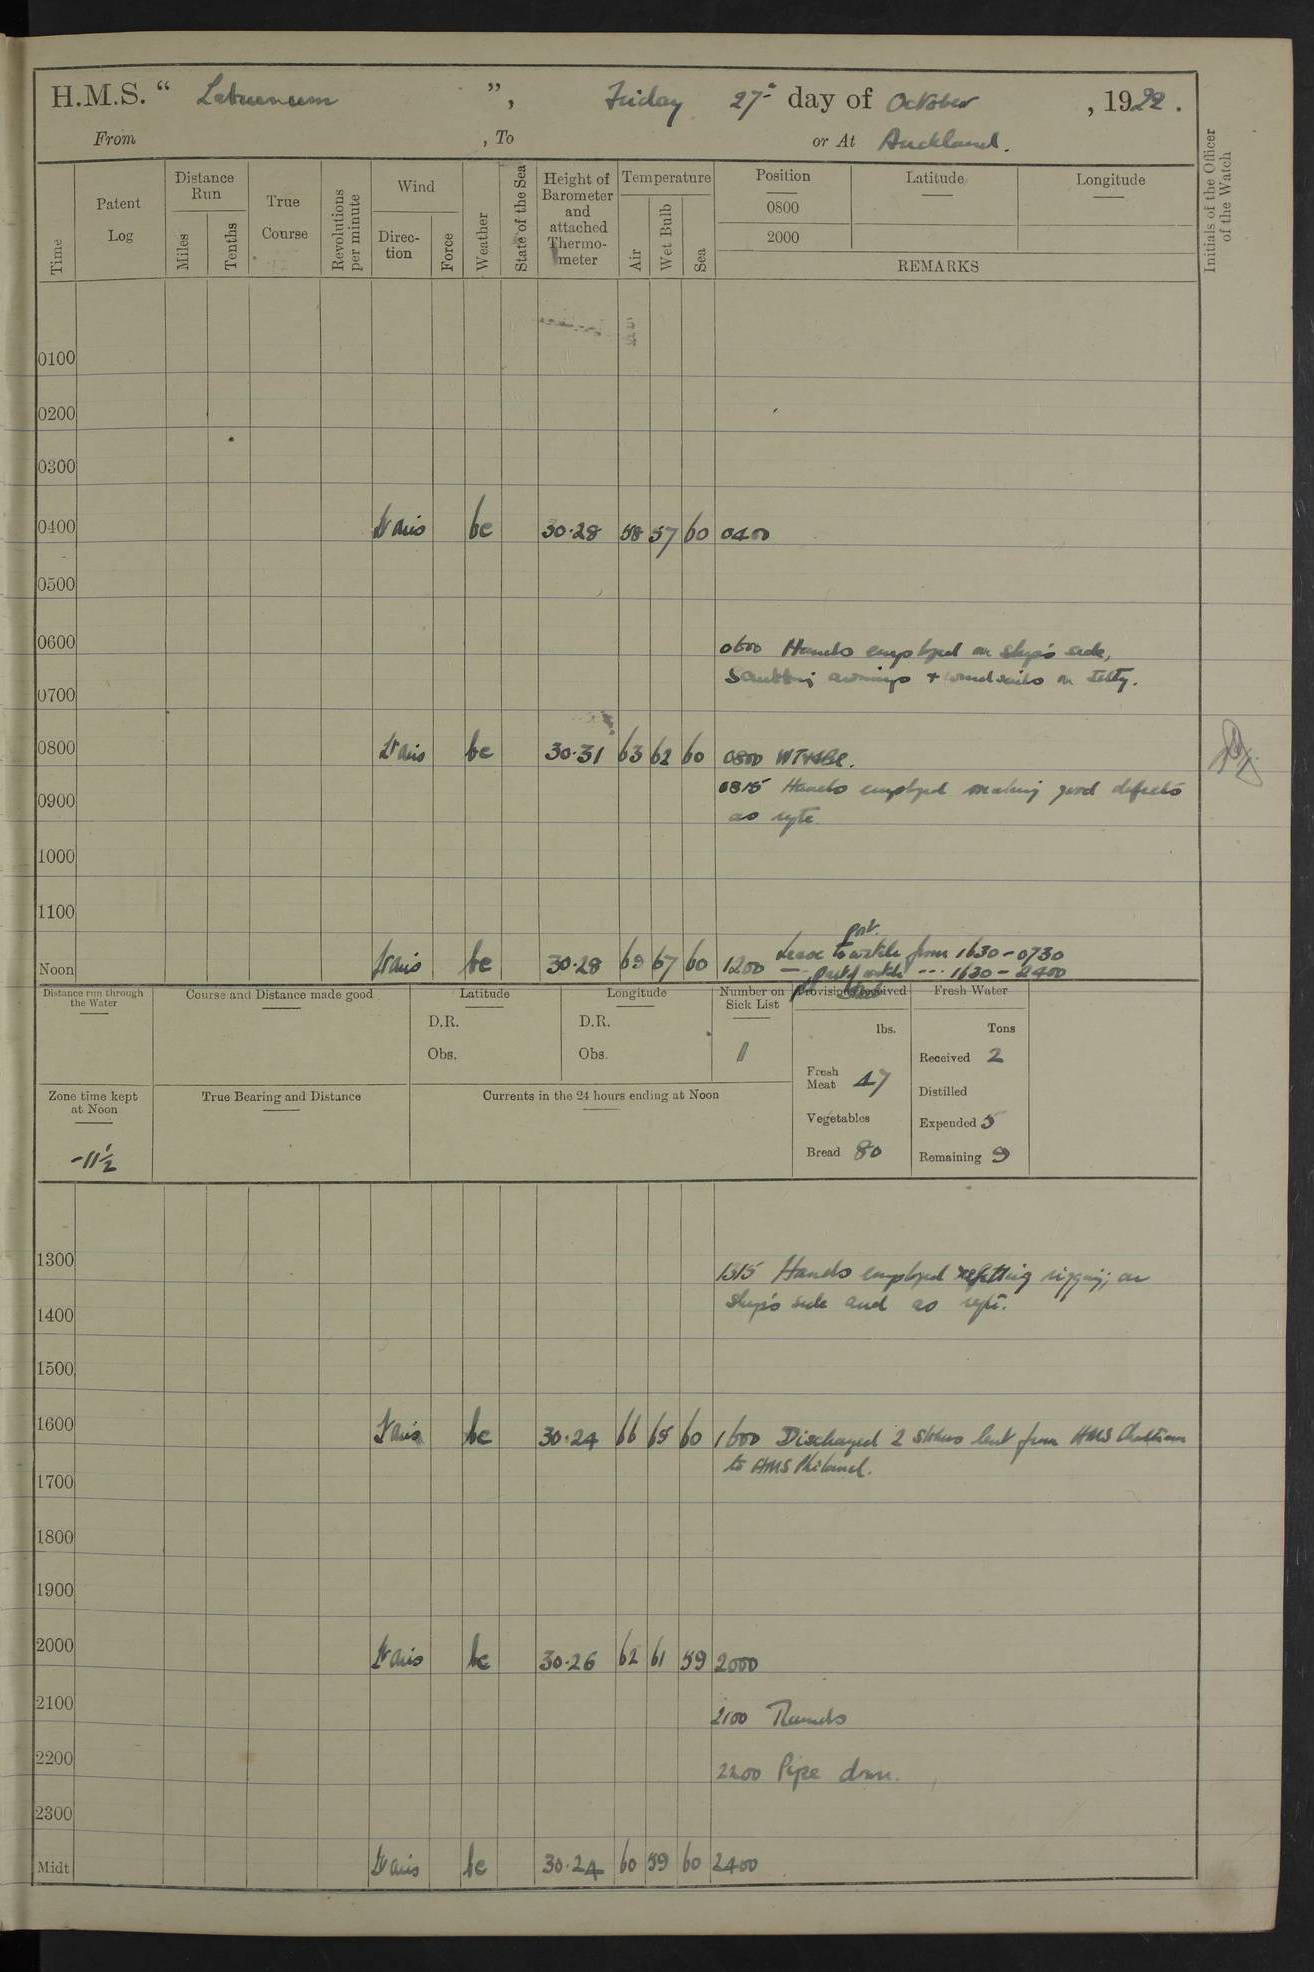 H.M.S. “ Laburnum ”, Friday 27th day of October, 1922.
From , To or At Auckland.
Time
Patent Log
Distance Run
Miles
Tenths
True Course
Revolutions per minute
Wind
Direction
Force
Weather
State of the Sea
Height of Barometer and attached Thermometer
Temperature
Air
Wet Bulb
Sea
Position
0800
2000
Latitude
Longitude
REMARKS
Initials of the Officer of the Watch
0100
0200
0300
0400 Lt airs bc 30.28 58 57 60 0400
0500
0600 0600 Hands employed on ship's side,
scrubbing awnings + windsails on jetty.
0700
0800 Lt airs bc 30.31 63 62 60 0800
0815 Hands employed making good defects
0900 as reqte.
1000
1100
port
Leave to watch from 1630-0730
Noon Lt airs bc 30.28 69 67 60 1200 — part watch --- 1630 - 2400
Distance run through the Water
Course and Distance made good
Latitude
D.R.
Obs.
Longitude
D.R.
Obs.
Number on Sick List
11
Provisions received
lbs.
Fresh Meat 47
Vegetables
Bread 80
Fresh Water
Tons
Received 2
Distilled
Expended 5
Remaining 9
Zone time kept at Noon
-11½
True Bearing and Distance
Currents in the 24 hours ending at Noon
1300 1315 Hands employed refitting rigging; on
1400 ship's side and as reqte.
1500
1600 Lt airs bc 30.24 66 65 60 1600 Discharged 2 stokers lent from HMS Chatham
to HMS Philomel.
1700
1800
1900
2000 Lt airs bc 30.26 62 61 59 2000
2100 2100 Rounds
2200 2200 Pipe down.
2300
Midt Lt airs bc 30.24 60 59 60 2400